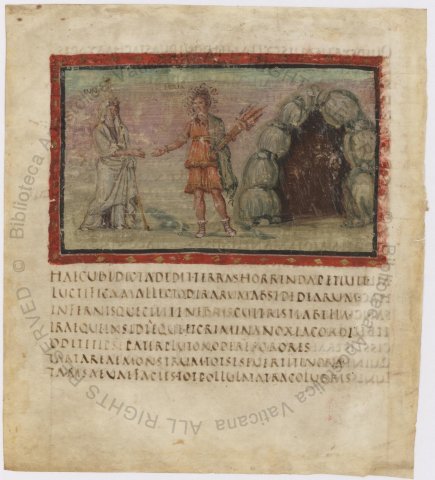 IUNO
HAECUBIDICTADEDITTERRASHORRENDAPETIUIT
LUCTIFICAMALLECTODIRARUMABSEDEDEARUM
INFERNISQUECIETTENEBRISCUITRISTIABELLA
IRAEQUEINSIDIAEQUEETCRIMINANOXIACORDI
ODITETIPSEPATERPLUTONODERESORORES
TARTAREAEMONSTRUMTOTSESEUERTITINORA
TAMSAEUAEFACIESTOTPULLULATATRACOLUBRIS
© Biblioteca Apostolica Vaticana ALL RIGHTS RESERVED